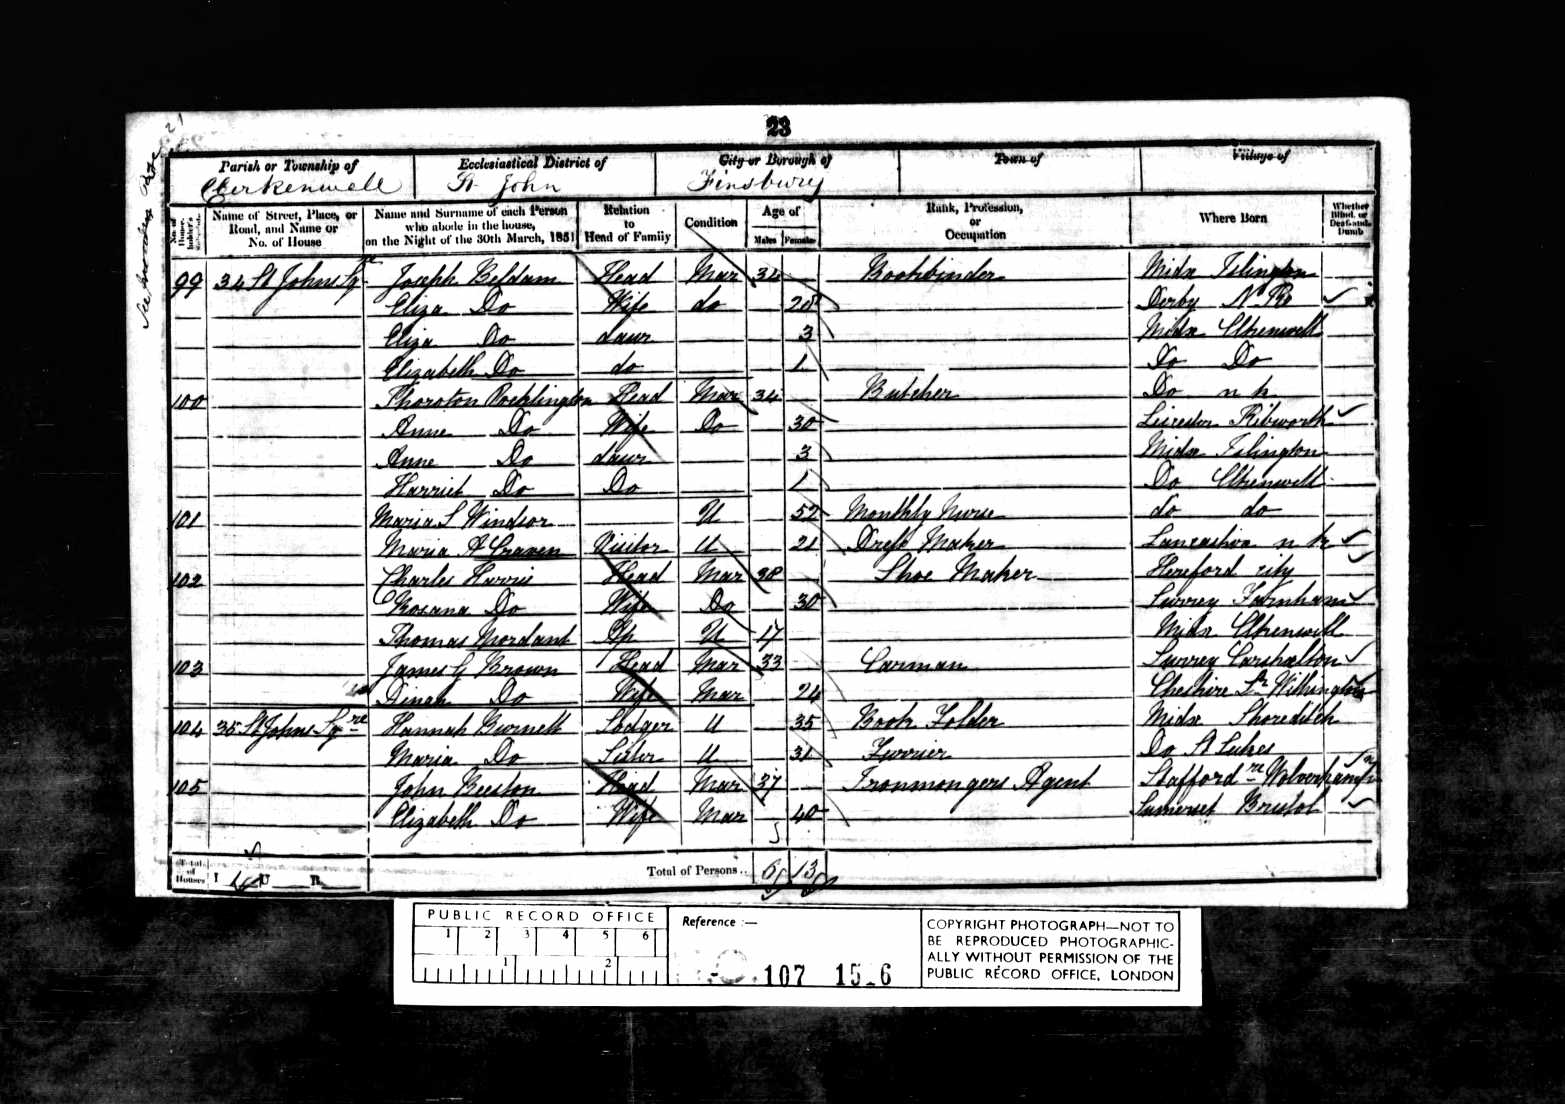 23
Parish or Township of Ecclesiastical District of City or Borough of Town of Village of
Clerkenwell St John Finsbury
No. of House-holder's Schedule Name of Street, Place, or Road, and Name or No. of House Name and Surname of each Person who abode in the house, on the Night of the 30th March, 1851 Relation to Head of Family Condition Age of Males Females Rank, Profession, or Occupation Where Born Whether Blind, or Deaf-and-Dumb
99 34 St Johns Sqre Joseph Beldam Head Mar 34 Bookbinder Midx Islington
Eliza Do Wife do 28 Derby
Eliza Do daur 3 Midx Clkenwell
Elizabeth Do do 1 Do Do
100 Thoroton Pocklington Head Mar 34 Butcher Do n k
Anne Do Wife Do 30 Leicester Kibworth
Anne Do daur 3 Midx Islington
Harriet Do Do 1 Do Clkenwell
101 Maria S Windsor U 52 Monthly Nurse do do
Maria A Craven Visitor U 21 Dress Maker Lancashire n k
102 Charles Harris Head Mar 38 Shoe Maker Hereford city
Rosana Do Wife Do 30 Surrey Farnham
Thomas Mordant Ap U 17 Midx Clkenwell
103 James G Brown Head Mar 33 Carman Surrey Carshalton
Dinah Do Wife Mar 24 Cheshire Withington
104 35 St Johns Sqre Hannah Burnett Lodger U 35 Book Folder Midx Shoreditch
Maria Do Sister U 31 Furrier Do St Lukes
105 John Beeston Head Mar 37 Ironmongers Agent Staffordre Wolverhampn
Elizabeth Do Wife Mar 40 Somerset Bristol
Total of Houses I U B Total of Persons 6 13
PUBLIC RECORD OFFICE
1 2 3 4 5 6
1 2
Reference :—
107 15 6
COPYRIGHT PHOTOGRAPH—NOT TO
BE REPRODUCED PHOTOGRAPHIC-
ALLY WITHOUT PERMISSION OF THE
PUBLIC RECORD OFFICE, LONDON